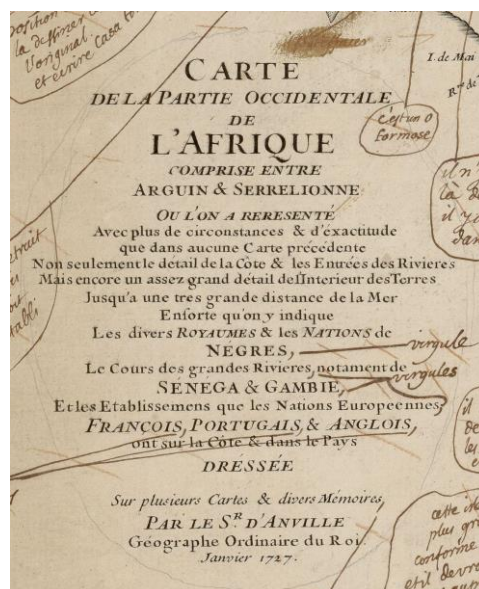 position
la dessiner
l'original.
et écrire casa
I. de Mai
CARTE
DE LA PARTIE OCCIDENTALE
DE
L'AFRIQUE
COMPRISE ENTRE
ARGUIN & SERRELIONNE
c'est un O
formose
OU L'ON A RERESENTÉ
Avec plus de circonstances & d'éxactitude
que dans aucune Carte précédente
Non seulement le détail de la Côte & les Entrées des Rivieres
Mais encore un assez grand détail de l'Interieur des Terres
Jusqu'a une tres grande distance de la Mer
Ensorte qu'on y indique
Les divers ROYAUMES & les NATIONS de
NÈGRES,
virgule
Le Cours des grandes Rivieres, notament de
SENEGA & GAMBIE,
virgules
Et les Etablissemens que les Nations Europeennes,
FRANÇOIS, PORTUGAIS, & ANGLOIS,
ont sur la Côte & dans le Pays
DRESSÉE
Sur plusieurs Cartes & divers Mémoires,
PAR LE SR. D'ANVILLE
Géographe Ordinaire du Roi.
Janvier 1727.
cette
plus
conforme
et il devro